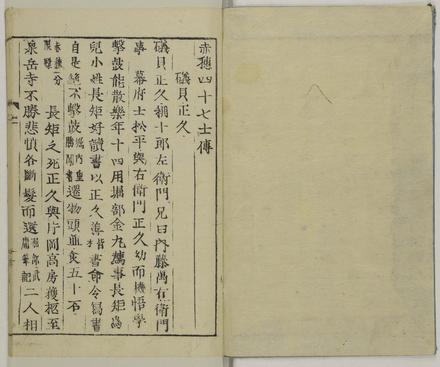 赤穗四十七士傳
礒貝正久
礒貝正久稱十郎左衛門兄曰內藤萬右衛門
事幕府士松平與右衛門正久幼而機悟學
擊鼓能散樂年十四用堀部金丸薦事長矩爲
兒小姓長矩好讀書以正久薄書命令爲書
自是絕不擊鼓堀內重勝聞書遷物頭並食五十石
長矩之死正久與片岡高房護柩至
泉岳寺不勝悲憤各斷髮而還堀部武庸筆記二人相